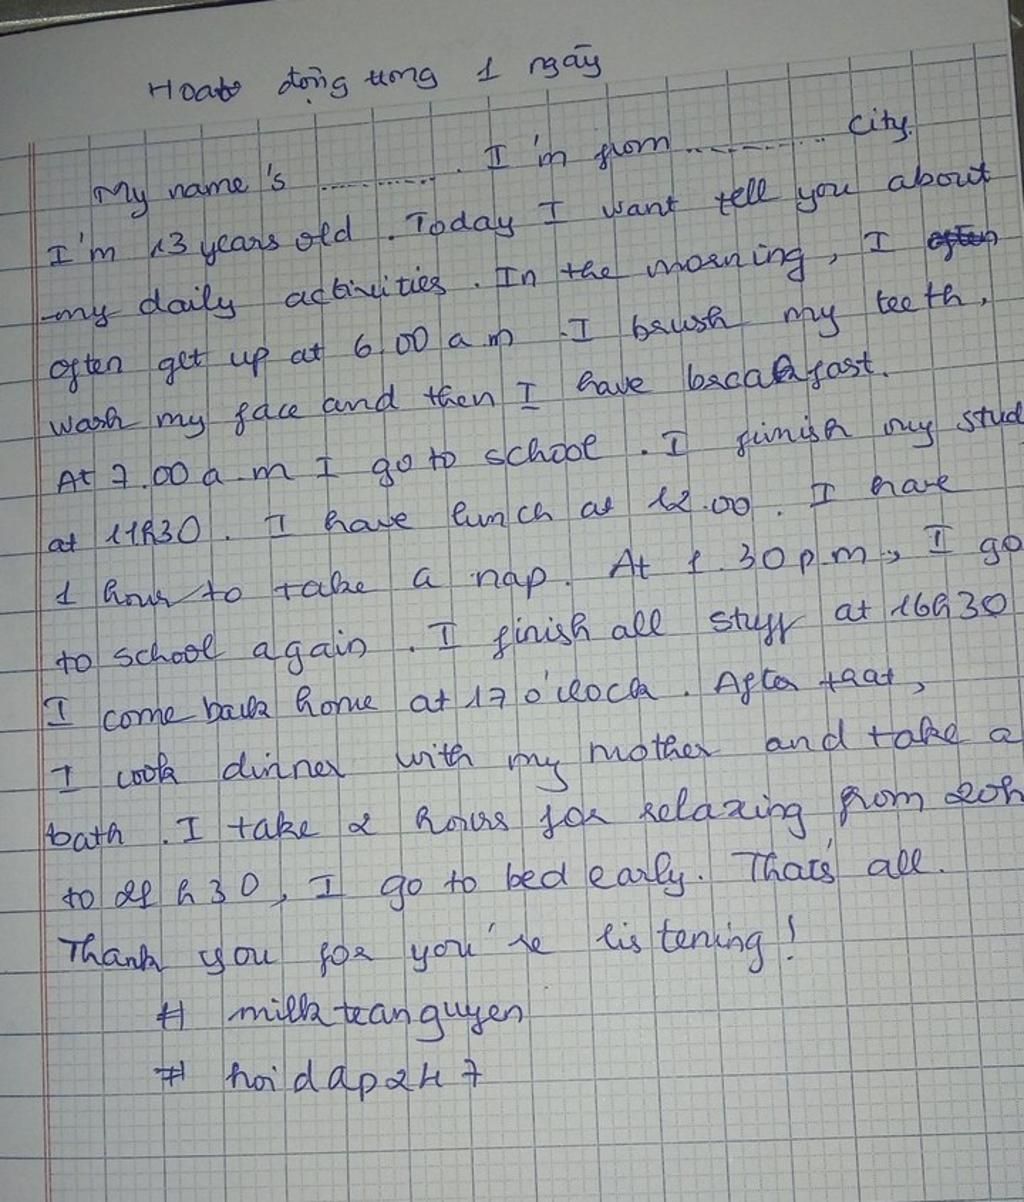 Hoạt động trong 1 ngày
My name's ............. I'm from ............. city.
I'm 13 years old. Today I want tell you about
my daily activities. In the morning, I
often get up at 6.00 a m. I brush my teeth,
wash my face and then I have breakfast.
At 7.00 a.m I go to school. I finish my stud
at 11h30. I have lunch at 12.00. I have
1 hour to take a nap. At 1.30 p.m, I go
to school again. I finish all stuff at 16h30
I come back home at 17 o'clock. After that,
I cook dinner with my mother and take a
bath. I take 2 hours for relaxing from 20h
to 21h30, I go to bed early. That's all.
Thank you for you're listening!
# milkteanguyen
# hoidap247